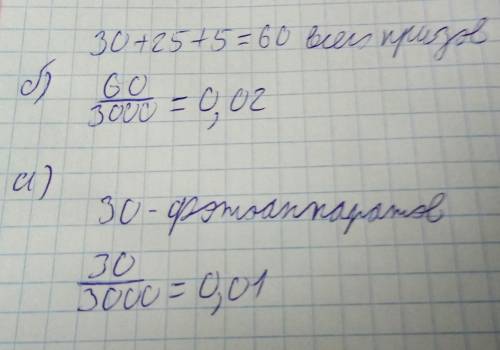 30+25+5=60 всех призов
б) 60/3000 = 0,02
а)
30 - фотоаппаратов
30/3000 = 0,01